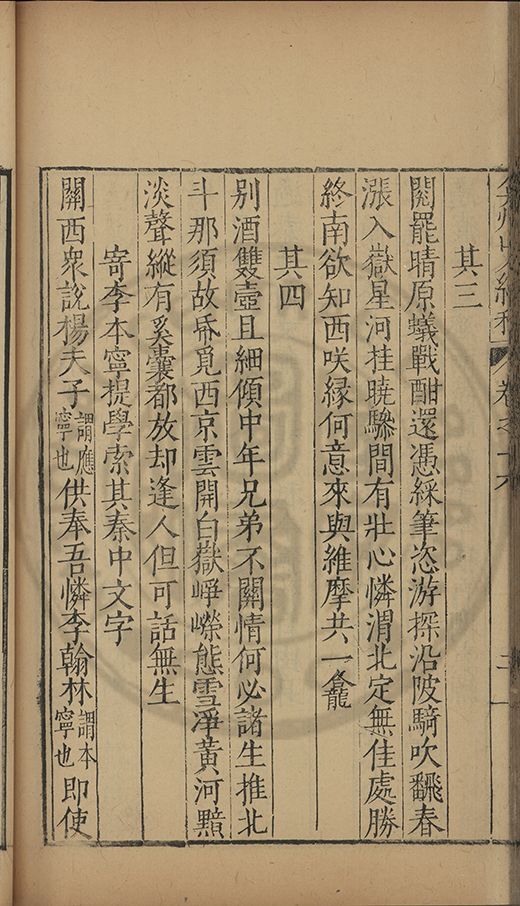 弇州山人續稿 卷之十六
其三
閱罷晴原蟻戰酣還憑綵筆恣游探沿陂騎吹飜春
漲入嶽星河挂曉驂間有壯心憐渭北定無佳處勝
終南欲知西咲緣何意來與維摩共一龕
其四
别酒雙壺且細傾中年兄弟不關情何必諸生推北
斗那須故帋覓西京雲開白嶽崢嶸態雪凈黄河黯
淡聲縱有奚囊都放却逢人但可話無生
寄李本寧提學索其秦中文字
關西衆說楊夫子謂應寧也供奉吾憐李翰林謂本寧也即使